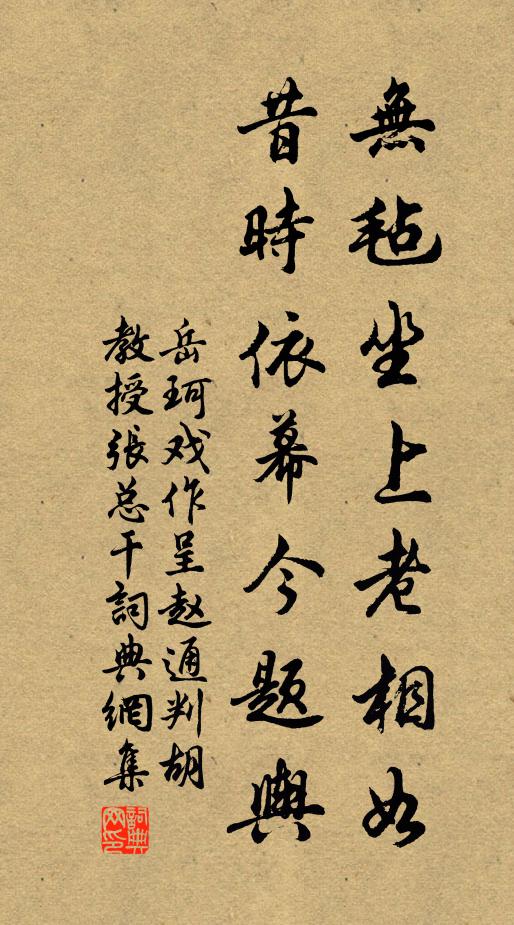 無毡坐上老相如
昔時依幕今题輿
岳珂戏作呈赵通判胡
教授張总干詞典網集
詞典网印